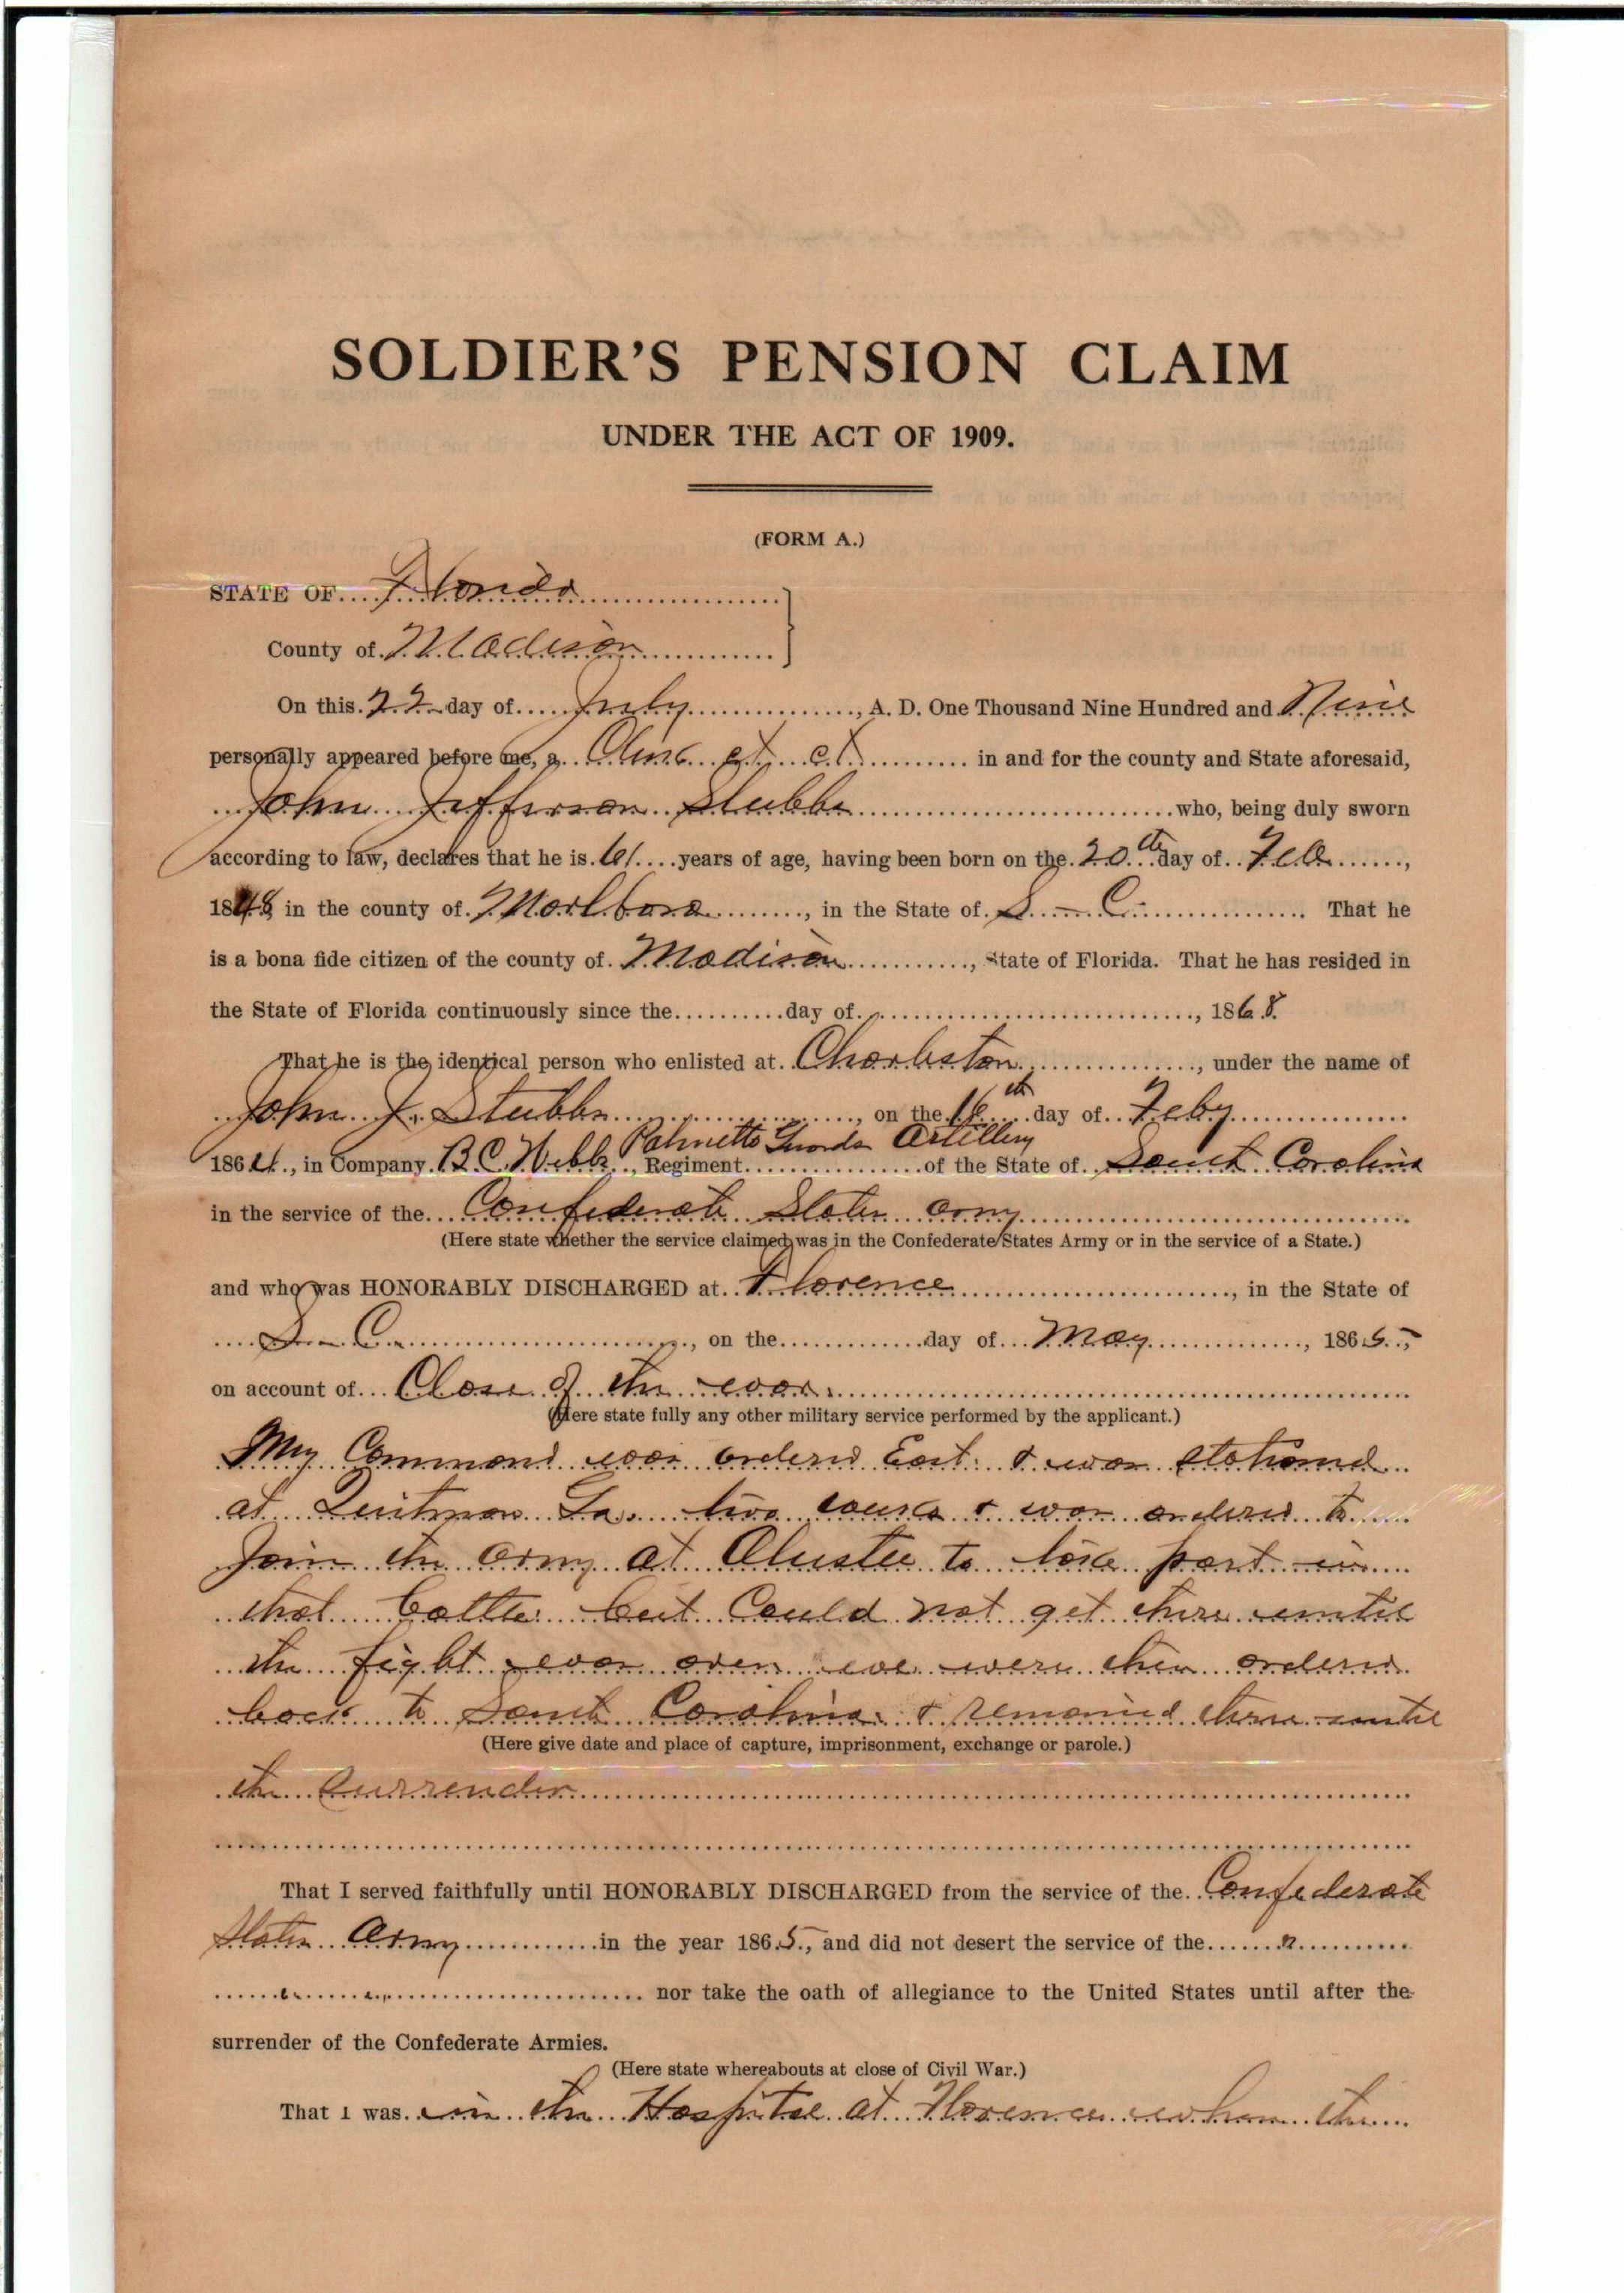 SOLDIER'S PENSION CLAIM
UNDER THE ACT OF 1909.
(FORM A.)
STATE OF Florida
County of Madison
On this 22 day of July, A. D. One Thousand Nine Hundred and Nine
personally appeared before me, a Clerk ct ct in and for the county and State aforesaid,
John Jefferson Stubbs who, being duly sworn
according to law, declares that he is 61 years of age, having been born on the 20th day of Feb,
1848 in the county of Marlboro, in the State of S. C. That he
is a bona fide citizen of the county of Madison, State of Florida. That he has resided in
the State of Florida continuously since the day of, 1868.
That he is the identical person who enlisted at Charleston, under the name of
John J. Stubbs, on the 16th day of Feby
1864, in Company B.C. Webb, Regiment Palmetto Guards Artillery of the State of South Carolina
in the service of the Confederate States army
(Here state whether the service claimed was in the Confederate States Army or in the service of a State.)
and who was HONORABLY DISCHARGED at Florence, in the State of
S. C., on the day of May, 1865
on account of Close of the war
(Here state fully any other military service performed by the applicant.)
My Command was orderd East & was stationed
at Quitman Ga. two weeks & was orderd to
Join the army at Olustee to take part in
that battle but Could not get there until
the fight was over we were then orderd
back to South Carolina & remained there until
(Here give date and place of capture, imprisonment, exchange or parole.)
the surrender
That I served faithfully until HONORABLY DISCHARGED from the service of the Confederate
States Army in the year 1865, and did not desert the service of the "
" " nor take the oath of allegiance to the United States until after the
surrender of the Confederate Armies.
(Here state whereabouts at close of Civil War.)
That I was in the Hospital at Florence when the